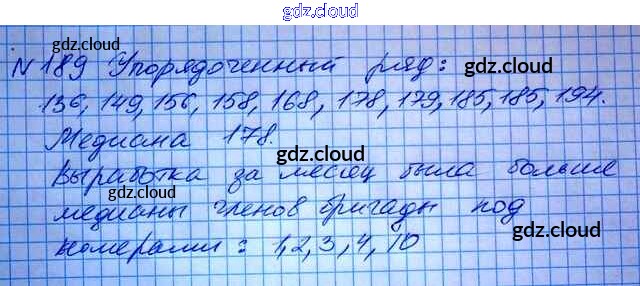 gdz.cloud
gdz.cloud
№189 Упорядоченный ряд:
gdz.cloud
136, 149, 156, 158, 168, 178, 179, 185, 185, 194.
gdz.cloud
Медиана 178.
gdz.cloud
Выработка за месяц была больше
gdz.cloud
медианы членов бригады под
gdz.cloud
номерами: 1, 2, 3, 4, 10
gdz.cloud
gdz.cloud